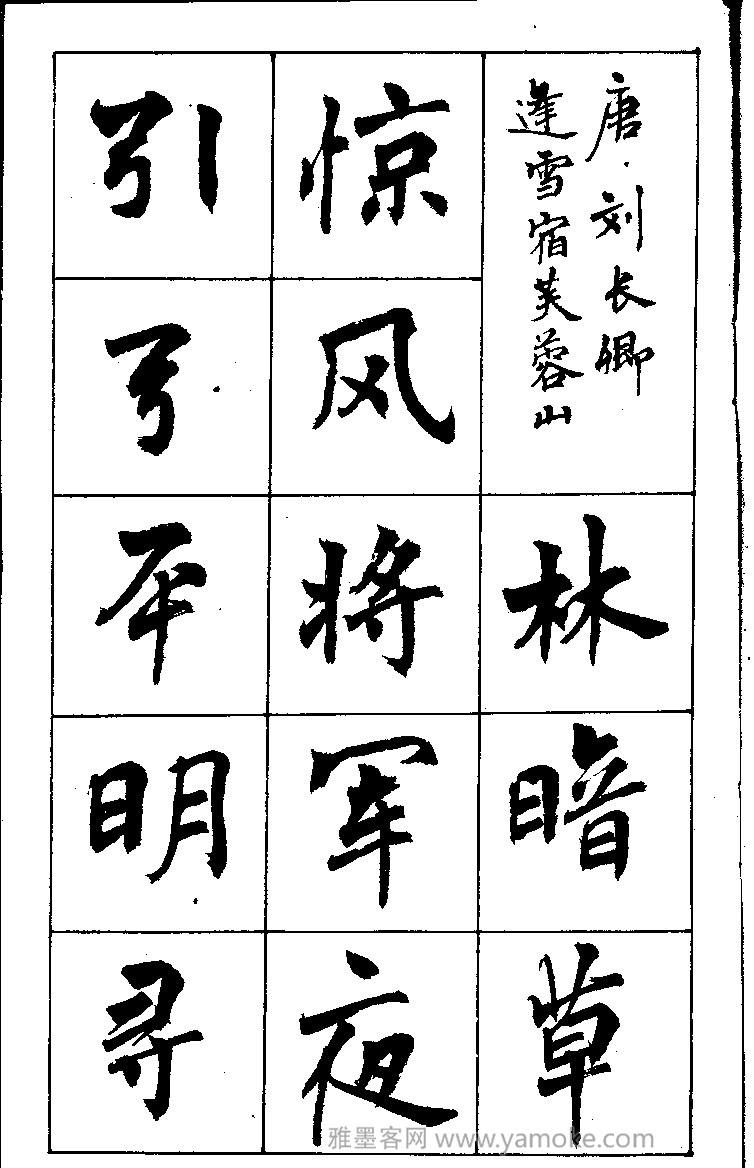 唐·刘长卿
逢雪宿芙蓉山
林暗草
惊风将军夜
引弓平明寻
雅墨客网 www.yamoke.com